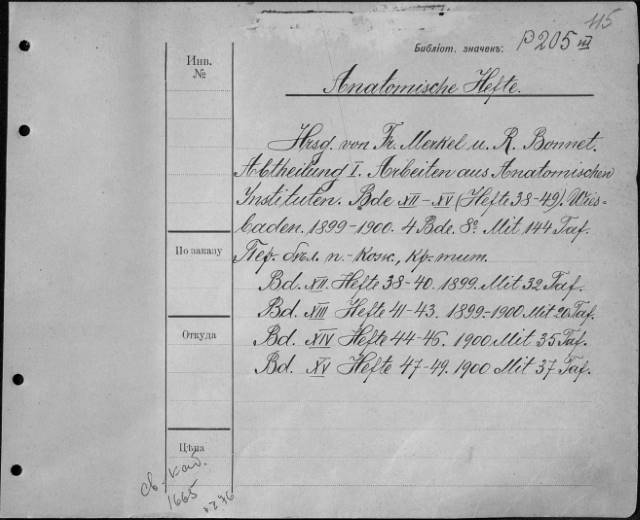 115
Библіот. значекъ: P 205 III
Инв. №
Anatomische Hefte.
Hrsg. von Fr. Merkel u. R. Bonnet.
Abtheilung I. Arbeiten aus Anatomischen
Instituten. Bde XII–XV (Hefte 38-49). Wies-
baden. 1899-1900. 4 Bde. 8º. Mit 144 Taf.
По заказу
Пер. бѣл. п.-кож., кр. тит.
Bd. XII. Hefte 38-40. 1899. Mit 32 Taf.
Bd. XIII Hefte 41-43. 1899-1900 Mit 20 Taf.
Откуда
Bd. XIV Hefte 44-46. 1900 Mit 35 Taf.
Bd. XV Hefte 47-49. 1900 Mit 37 Taf.
Цѣна
св.-каб.
1665
276